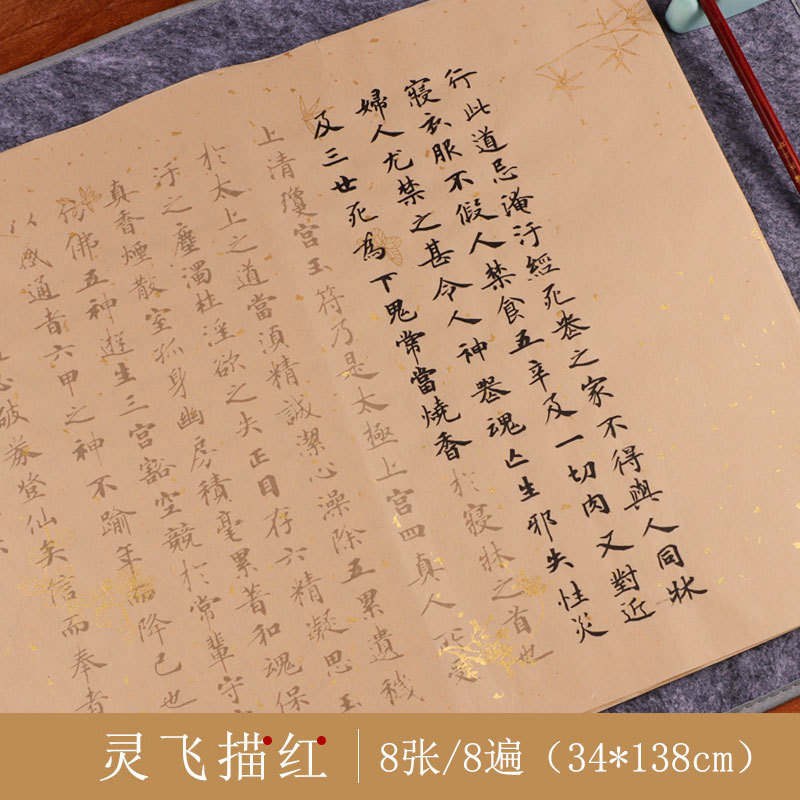 行此道忌淹汙經死喪之家不得與人同牀
寢衣服不假人禁食五辛及一切肉又對近
婦人尤禁之甚令人神喪魂亡生邪失性災
及三世死為下鬼常當燒香於寢牀之首也
上清瓊宮玉符乃是太極上宮四真人所受
於太上之道當湏精誠潔心澡除五累遺穢
汙之塵濁杜淫欲之失正目存六精凝思玉
真香煙散室孤身幽房積毫累著和魂保
仿佛五神遊生三宮豁空競於常輩守
以感通者六甲之神不踰年而降己也
心破券登仙矣信而奉者
灵飞描红 8张/8遍（34*138cm）